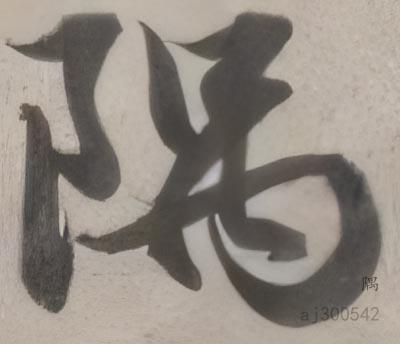 隅
隅
aj300542